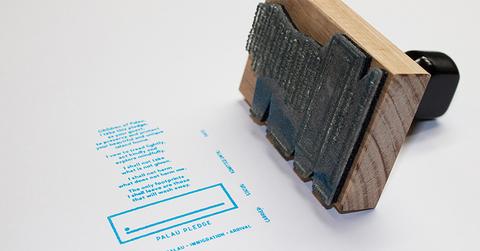 Children of Palau,
I take this pledge,
as your guest,
to preserve and protect
your beautiful and unique
island home.
I vow to tread lightly,
act kindly and
explore mindfully.
I shall not take
what is not given.
I shall not harm
what does not harm me.
The only footprints
I shall leave are those
that will wash away.
PALAU PLEDGE
PALAU · IMMIGRATION · ARRIVAL